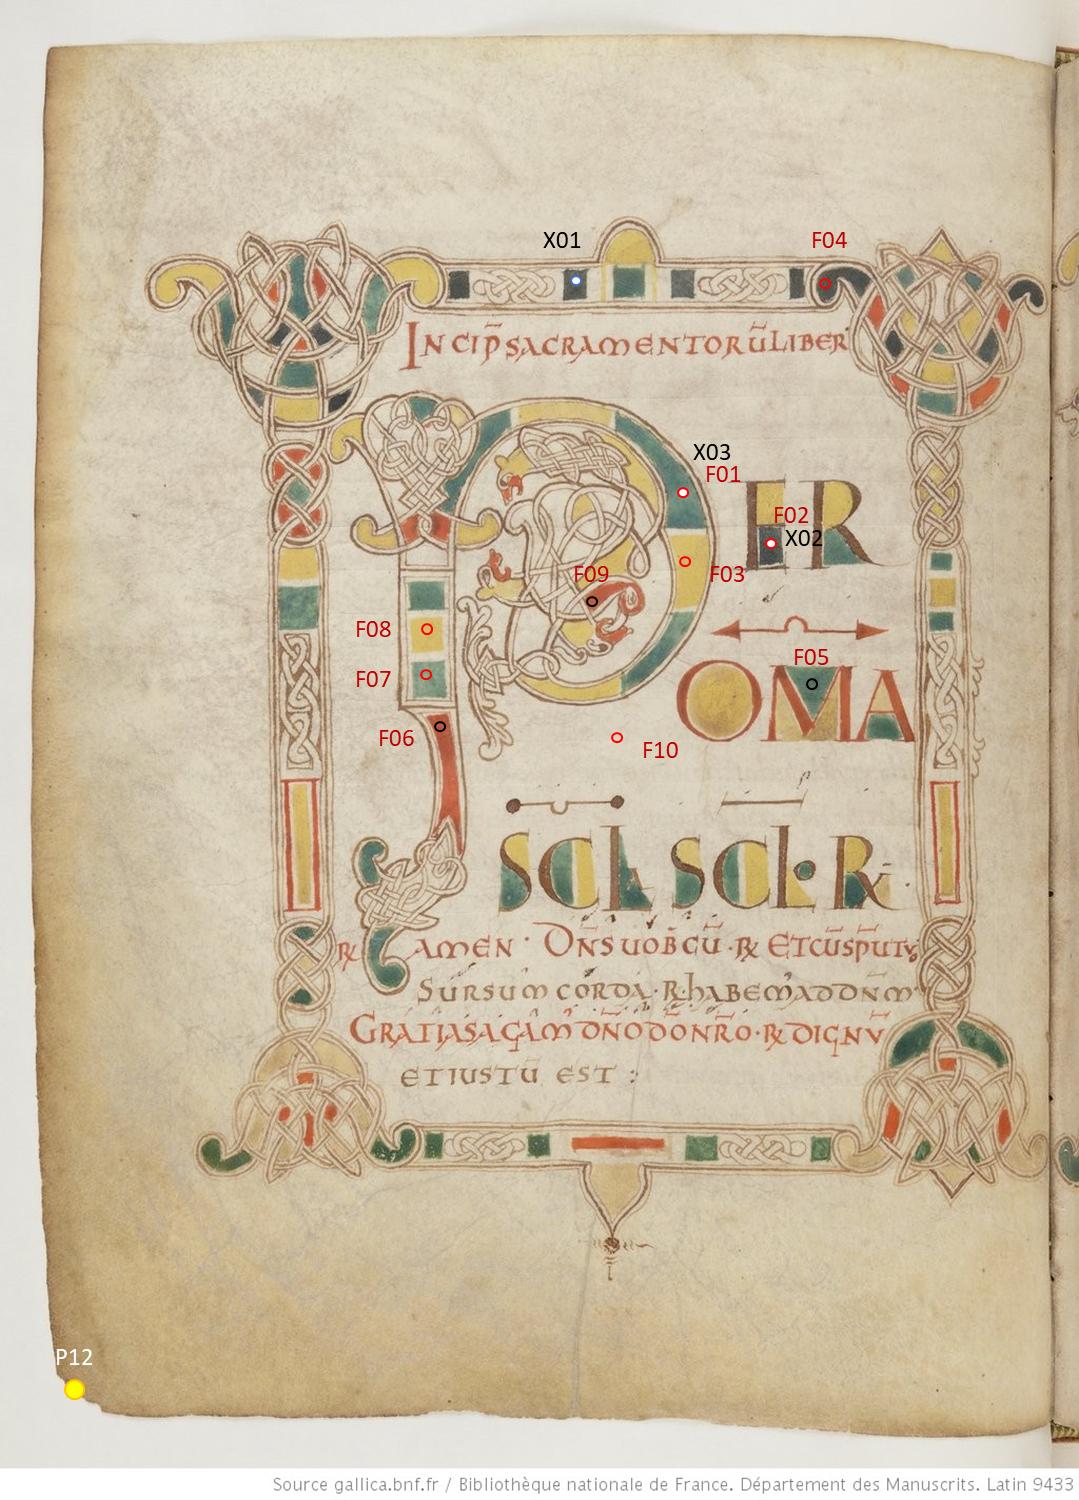 X01
F04
INCIP̄ SACRAMENTORŪ LIBER
X03
F01
PER
F02
X02
F09
F03
F08
F05
F07
OMA
F06
F10
SCLA SCLOR
℞ AMEN · DN̄S UOB̄CŪ · ℞ ET CŪ SP̄U TUO
SURSUM CORDA · ℞ HABEM AD DN̄M
GRATIAS AGAM DN̄O DO NR̄O · ℞ DIGNV̄
ET IUSTŪ EST :
P12
Source gallica.bnf.fr / Bibliothèque nationale de France. Département des Manuscrits. Latin 9433